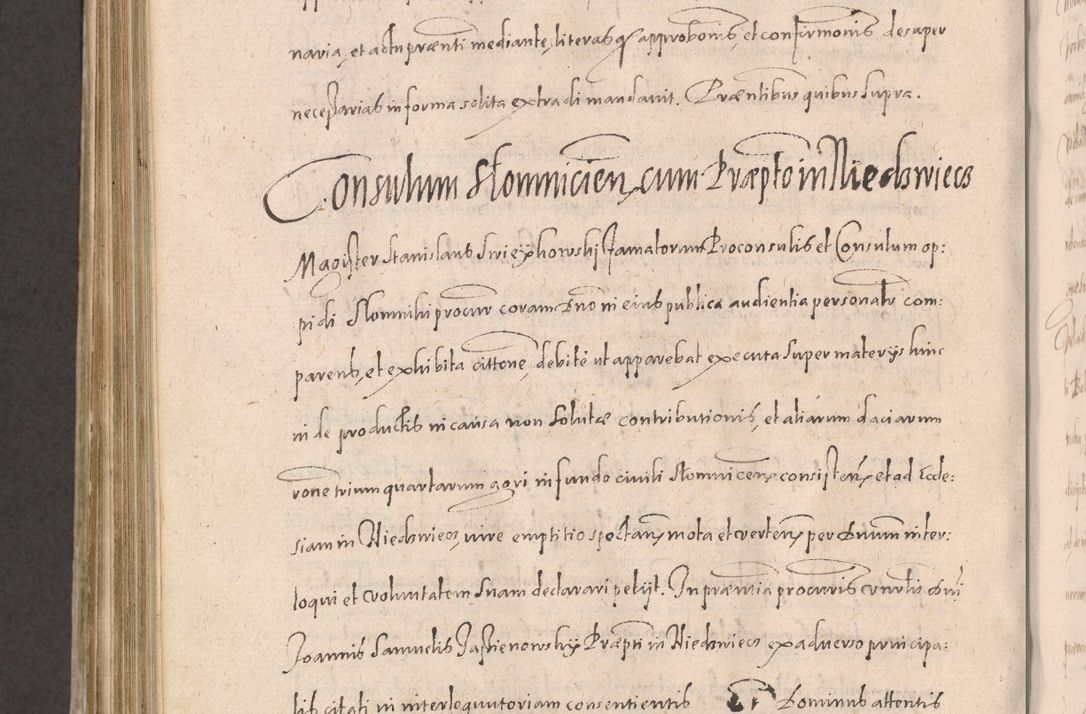 naria, et actu præsenti mediante, literas q̃ approbonis, et confirmonis desuper
necessarias in forma solita extradi mandavit. Præntibus quibus supra.
Consulum Słomniciens̃, cum Præpto in Niedzwiecz
Magister Stanislaus Swieykowski Famatorum Proconsulis et Consulum op:
pidi Słomniki procur coram Dno in eius publica audientia personalr com:
parens, et exhibita cittone, debite ut apparebat executa super materijs hinc
inde productis in causa non solutæ contributionis, et aliarum daciarum
rone trium quartarum agri in fundo civili Słomnicens̃ consisten̄, et ad Eccle:
siam in Niedzwiecz, iure emptitio spectan̄, mota et verten̄, per Dnum inter:
loqui et voluntatem suam declarari petijt. In præntia procuris cunctis dni
Joannis Samuelis Jastienowsky Præpti in Niedzwiecz ex adverso principa:
lis citati in interloquutoriam consentientis Dominus attentis